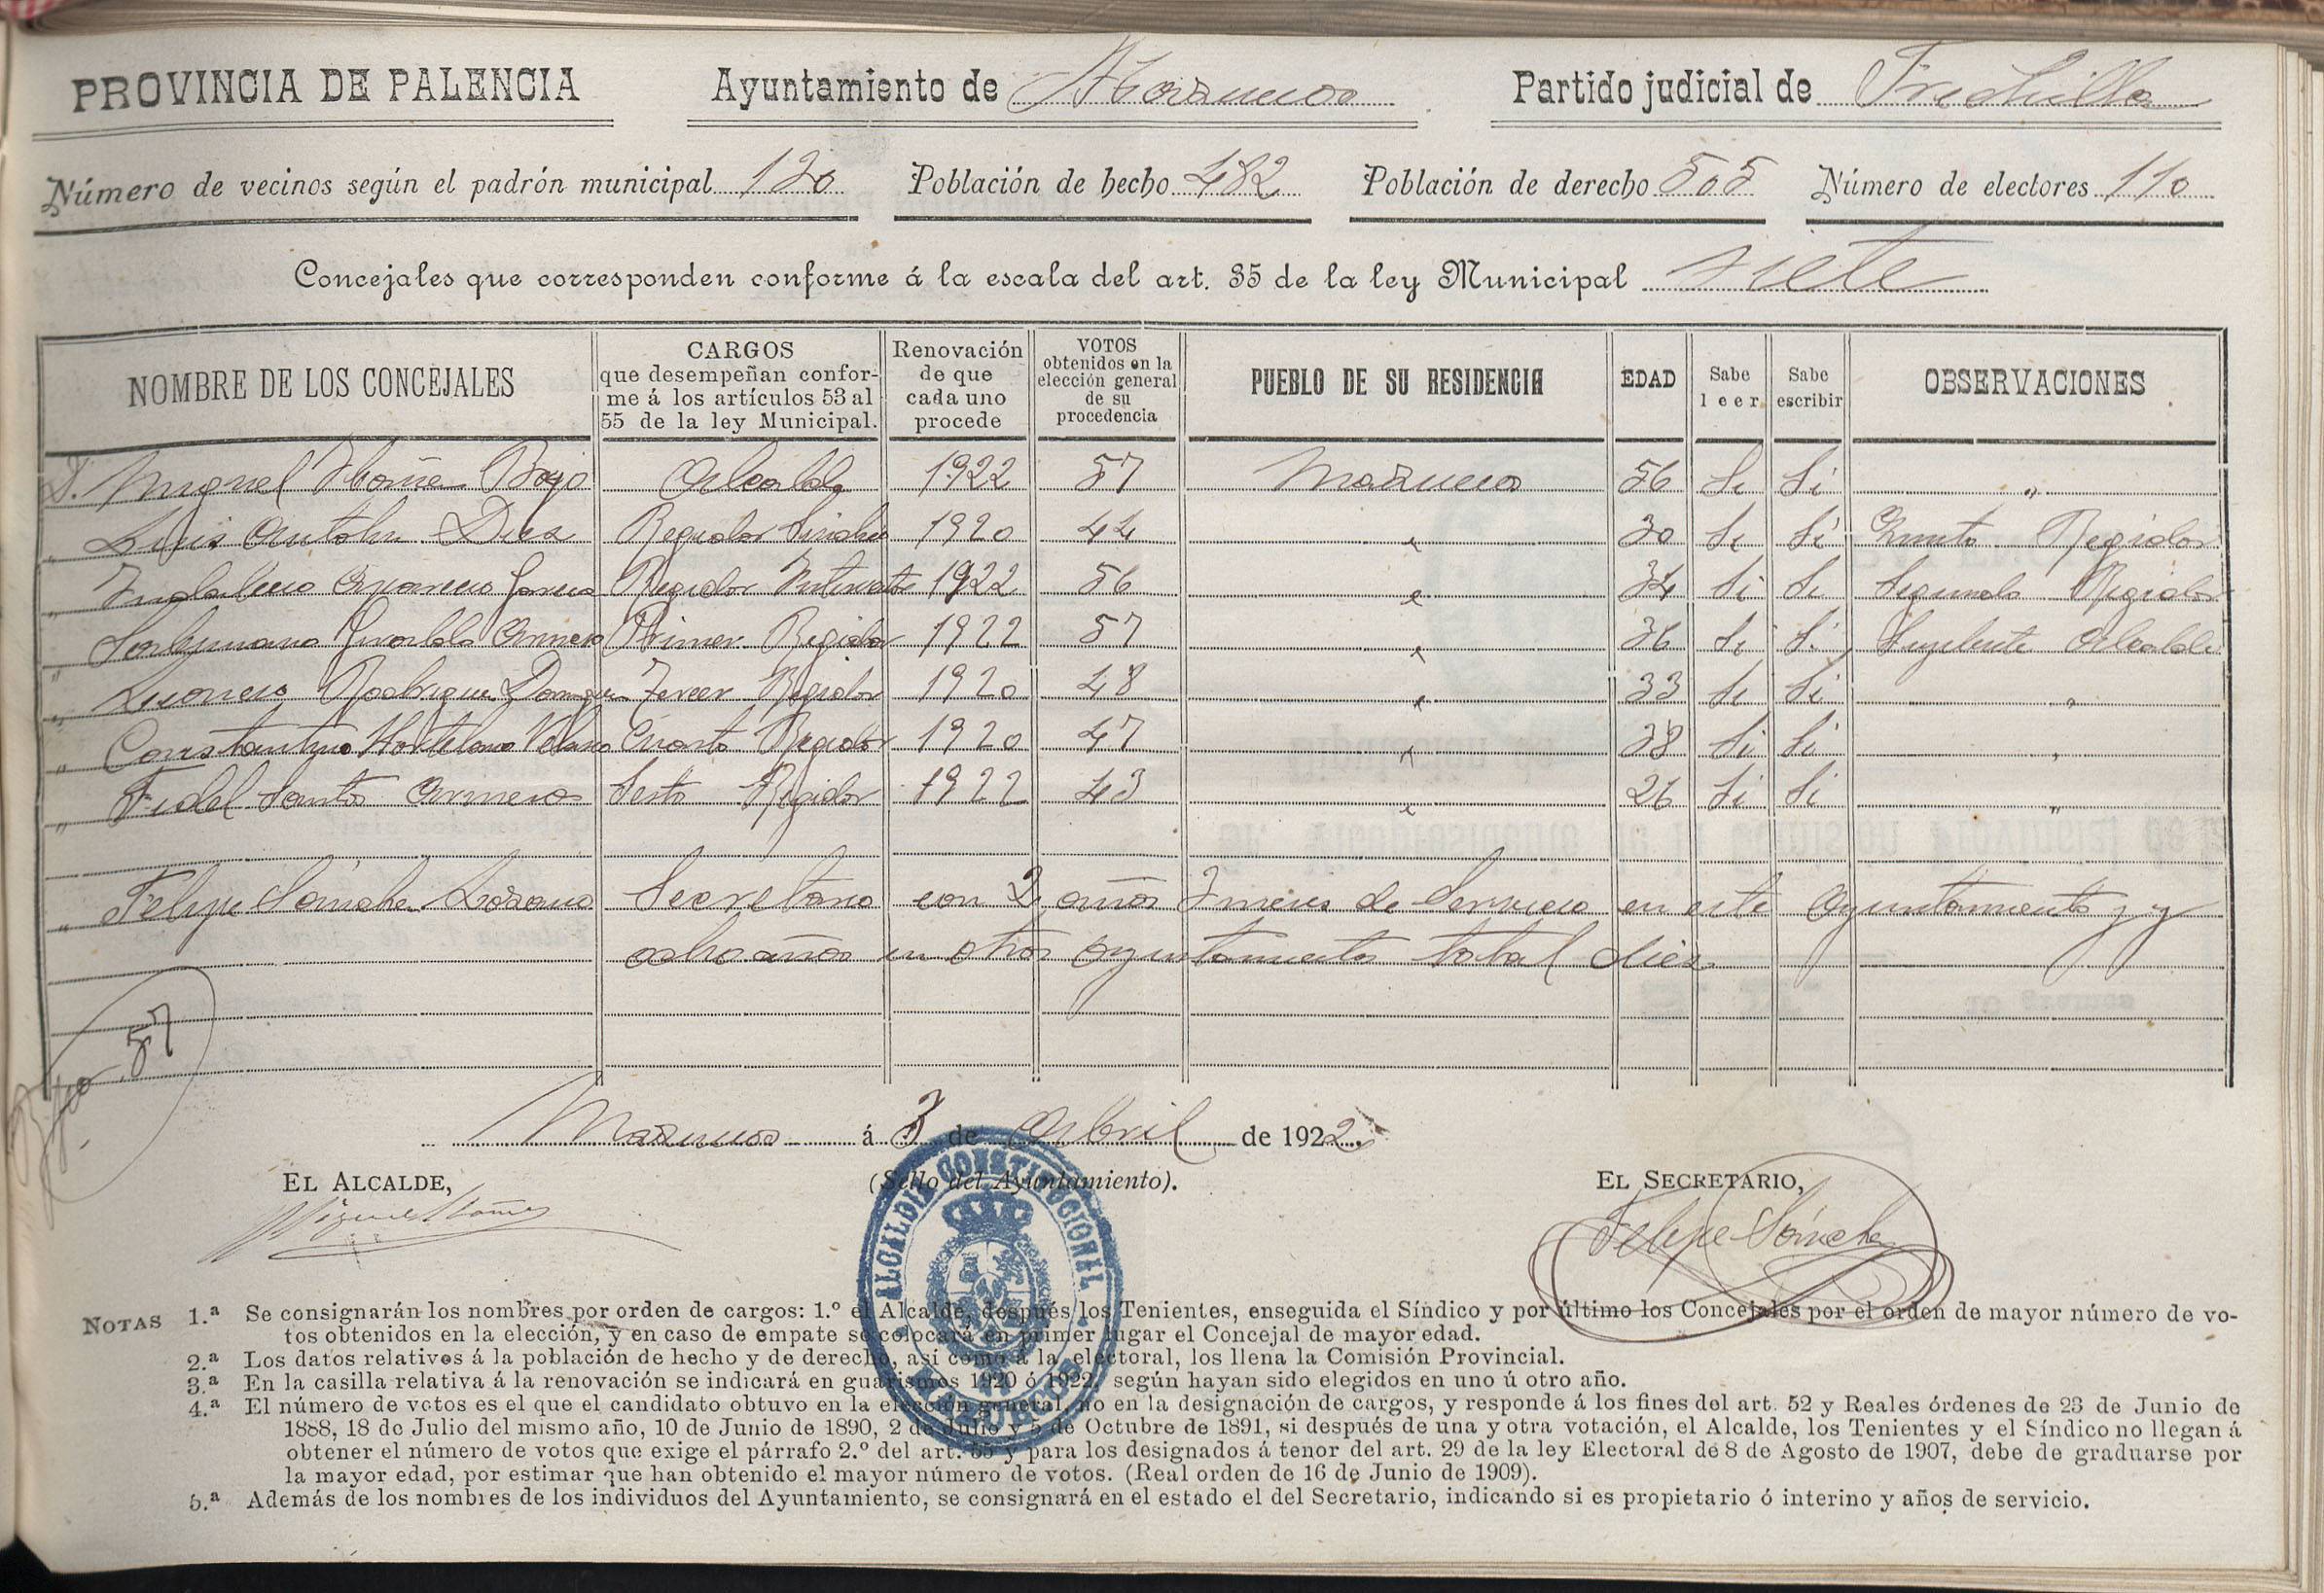 PROVINCIA DE PALENCIA Ayuntamiento de Mazuecos Partido judicial de Frechilla
Número de vecinos según el padrón municipal 120 Población de hecho 482 Población de derecho 505 Número de electores 110
Concejales que corresponden conforme á la escala del art. 35 de la ley Municipal siete
NOMBRE DE LOS CONCEJALES
CARGOS
que desempeñan confor-
me á los artículos 53 al
55 de la ley Municipal.
Renovación
de que
cada uno
procede
VOTOS
obtenidos en la
elección general
de su
procedencia
PUEBLO DE SU RESIDENCIA
EDAD
Sabe
leer
Sabe
escribir
OBSERVACIONES
D. Miguel Ibañez Alcalde 1922 57 Mazuecos 56 Si Si "
" Luis Antolin Diez Regidor Sindico 1920 44 " 30 Si Si Regidor
" Indalecio Garcia Regidor 1922 56 " 34 Si Si Segundo Regidor
" Giraldo Primer Regidor 1922 57 " 36 Si Si Suplente Alcalde
" Leoncio Rodriguez Dominguez Tercer Regidor 1920 48 " 33 Si Si "
" Constantino Hortelano Velasco Cuarto Regidor 1920 47 " 38 Si Si "
" Fidel Santos Sesto Regidor 1922 43 " 26 Si Si "
" Felipe Sánchez Lozano Secretario con 2 años 3 meses de Servicio en este Ayuntamiento y
ocho años en otros Ayuntamientos total diez
57
Mazuecos á 3 de Abril de 1922.
EL ALCALDE,
Miguel Ibañez
(Sello del Ayuntamiento).
ALCALDIA CONSTITUCIONAL
EL SECRETARIO,
Felipe Sánchez
NOTAS 1.ª Se consignarán los nombres por orden de cargos: 1.º el Alcalde, después los Tenientes, enseguida el Síndico y por último los Concejales por el orden de mayor número de vo-
tos obtenidos en la elección, y en caso de empate se colocará en primer lugar el Concejal de mayor edad.
2.ª Los datos relativos á la población de hecho y de derecho, asi como á la electoral, los llena la Comisión Provincial.
3.ª En la casilla relativa á la renovación se indicará en guarismos 1920 ó 1922, según hayan sido elegidos en uno ú otro año.
4.ª El número de votos es el que el candidato obtuvo en la elección general, no en la designación de cargos, y responde á los fines del art. 52 y Reales órdenes de 23 de Junio de
1888, 18 de Julio del mismo año, 10 de Junio de 1890, 2 de Julio y 5 de Octubre de 1891, si después de una y otra votación, el Alcalde, los Tenientes y el Síndico no llegan á
obtener el número de votos que exige el párrafo 2.º del art. 55 y para los designados á tenor del art. 29 de la ley Electoral de 8 de Agosto de 1907, debe de graduarse por
la mayor edad, por estimar que han obtenido el mayor número de votos. (Real orden de 16 de Junio de 1909).
5.ª Además de los nombres de los individuos del Ayuntamiento, se consignará en el estado el del Secretario, indicando si es propietario ó interino y años de servicio.